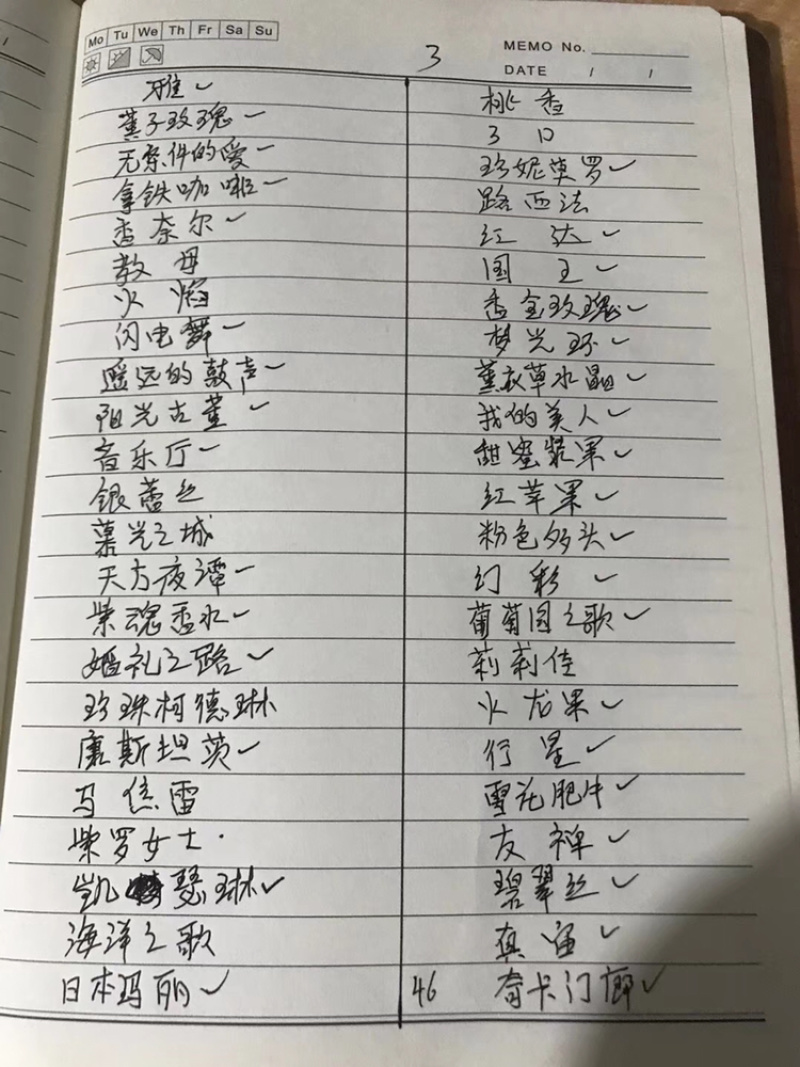 Mo Tu We Th Fr Sa Su
3
MEMO No.
DATE / /
雅✓
薰子玫瑰✓
无条件的爱✓
拿铁咖啡✓
香奈尔✓
教母
火焰
闪电舞✓
遥远的鼓声✓
阳光古董✓
音乐厅✓
银蕾丝
慕光之城
天方夜谭✓
紫魂香水✓
婚礼之路✓
珍珠柯德琳
康斯坦茨✓
马焦雷
紫罗女士·
凯瑟琳✓
海洋之歌
日本玛丽✓
桃香
3口
珍妮莫罗✓
路西法
红达✓
国王✓
香金玫瑰✓
梦光环✓
薰衣草水晶✓
我的美人✓
甜蜜浆果✓
红苹果✓
粉色多头✓
幻彩✓
葡萄园之歌✓
莉莉佳
火龙果✓
行星✓
雪花肥牛✓
友禅✓
碧翠丝✓
真宙✓
46
奇卡门廊✓